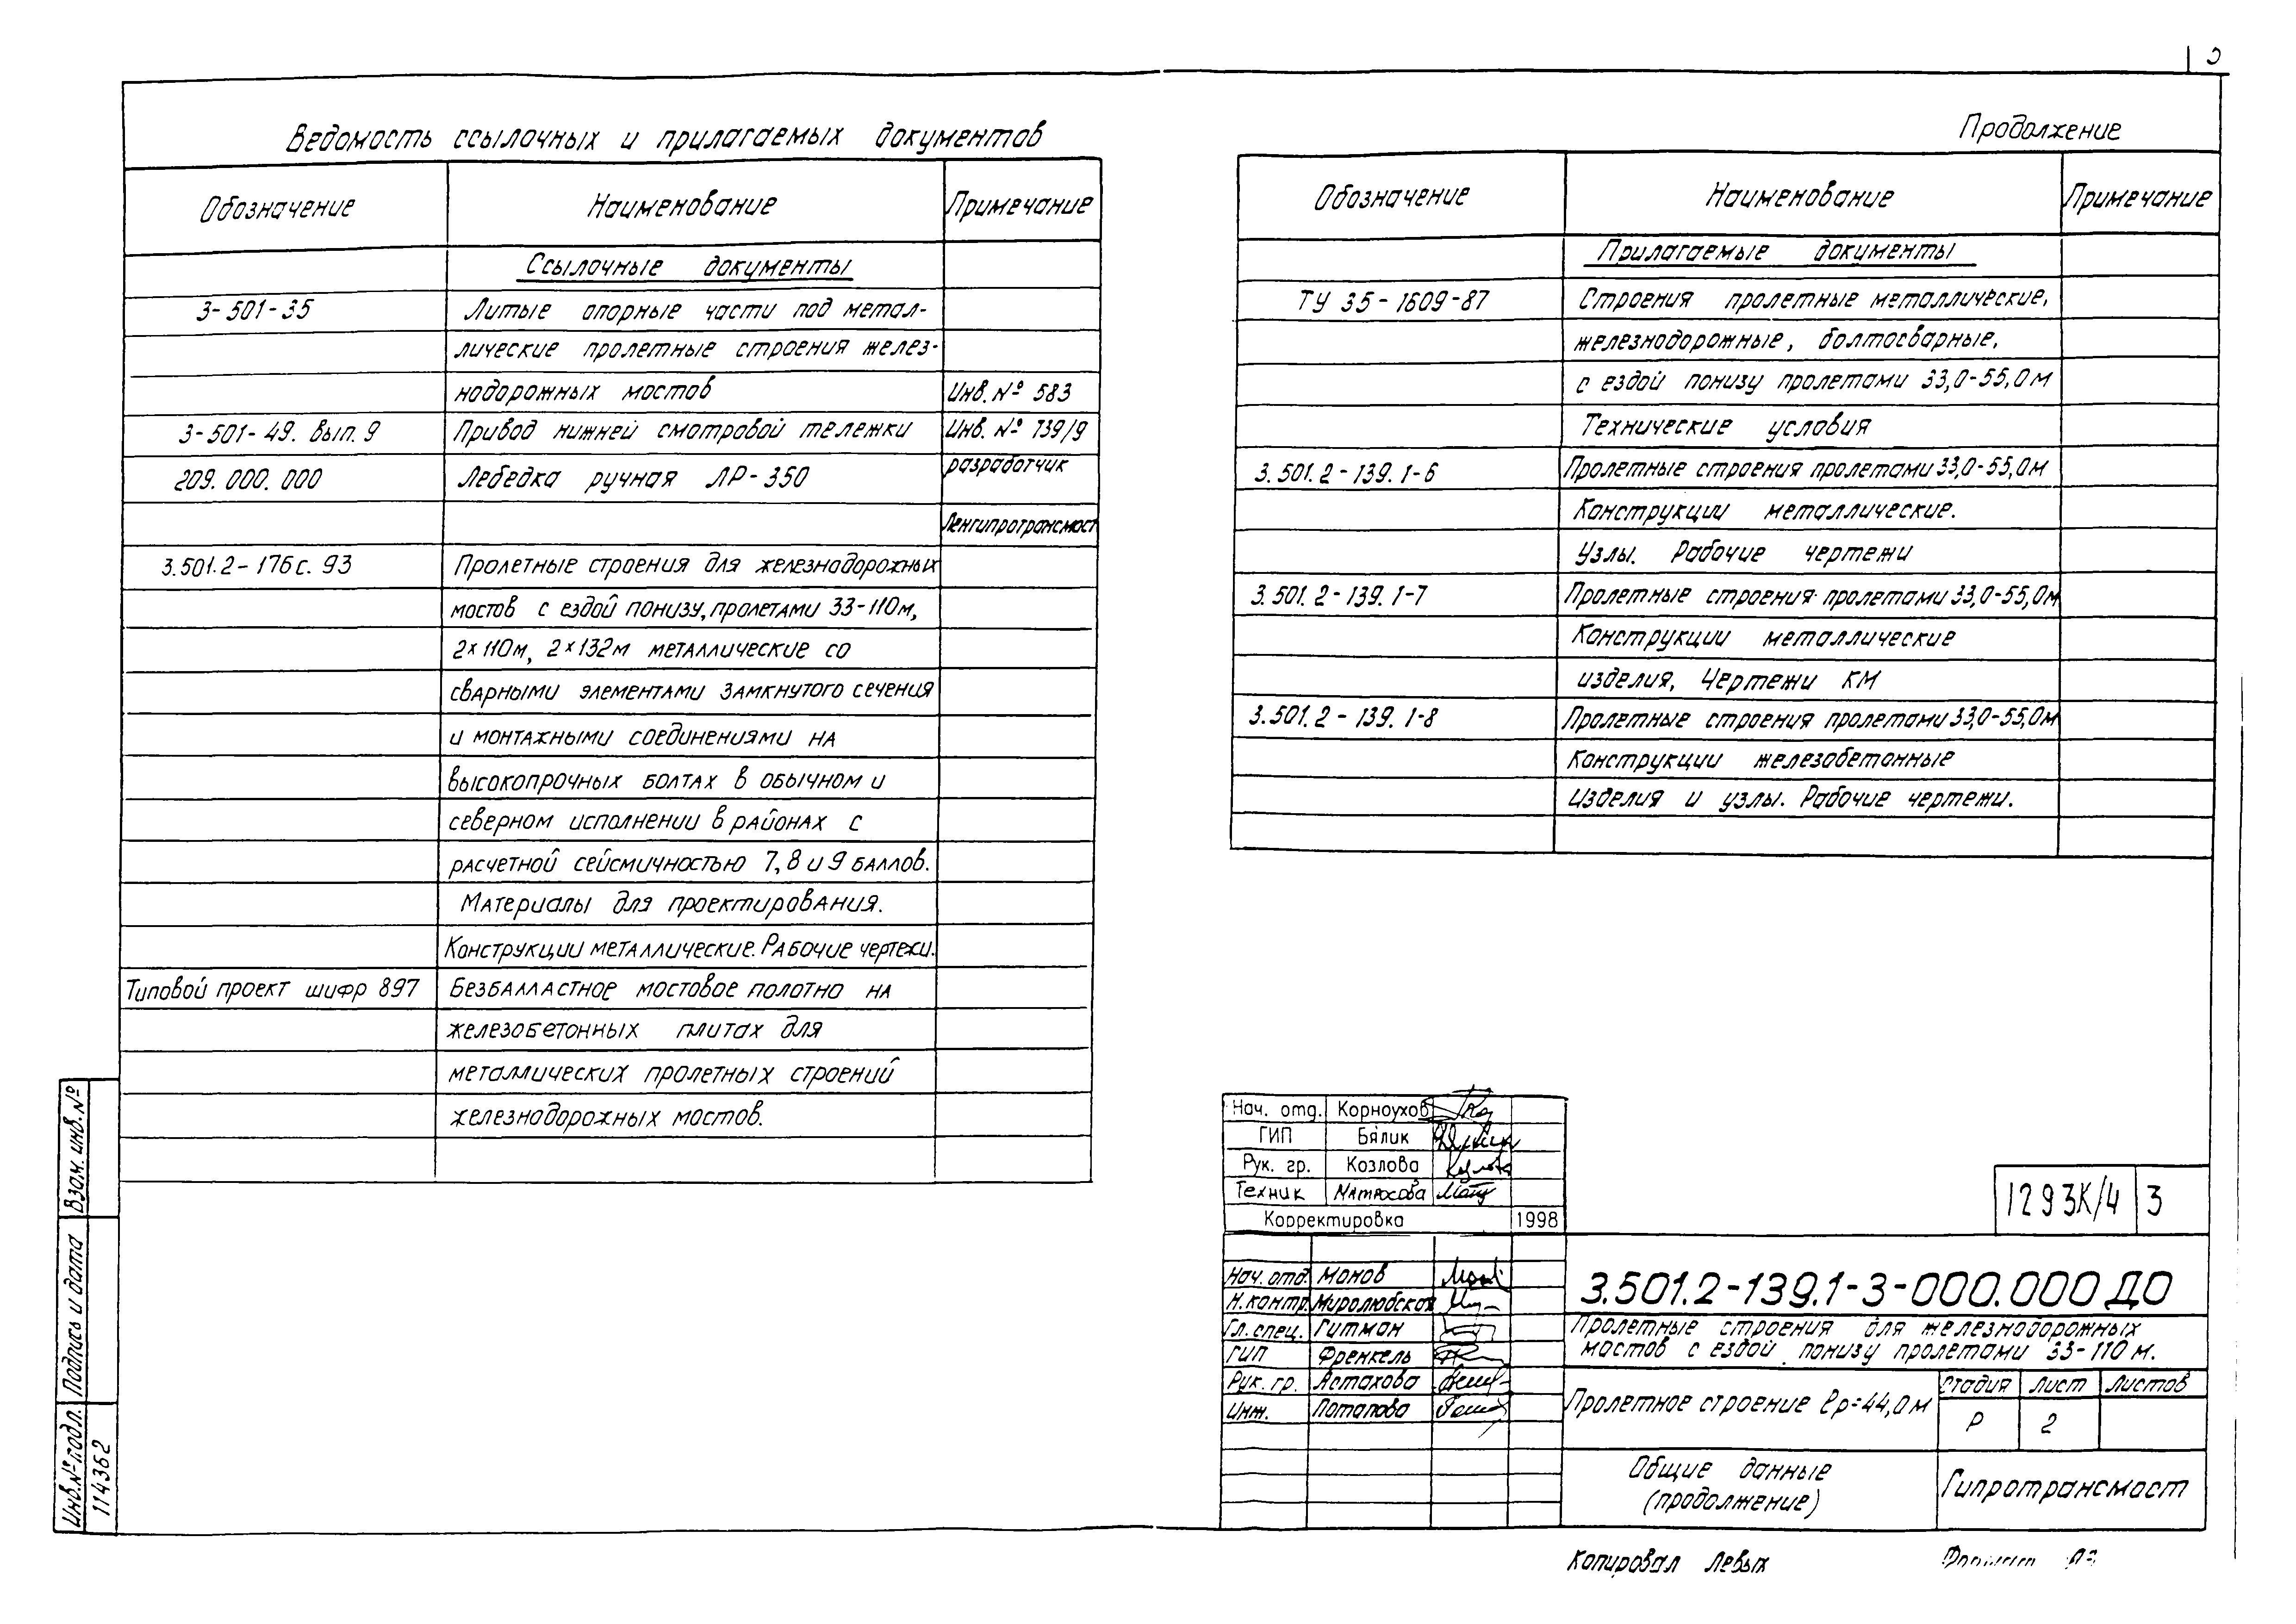 Ведомость ссылочных и прилагаемых документов
Обозначение Наименование Примечание
Ссылочные документы
3-501-35 Литые опорные части под метал-
лические пролетные строения желез-
нодорожных мостов Инв. № 583
3-501-49. Вып. 9 Привод нижней смотровой тележки Инв. № 739/9
209.000.000 Лебедка ручная ЛР-350 разработчик
Ленгипротрансмост
3.501.2-176с.93 Пролетные строения для железнодорожных
мостов с ездой понизу, пролетами 33-110м,
2×110м, 2×132м металлические со
сварными элементами замкнутого сечения
и монтажными соединениями на
высокопрочных болтах в обычном и
северном исполнении в районах с
расчетной сейсмичностью 7, 8 и 9 баллов.
Материалы для проектирования.
Конструкции металлические. Рабочие чертежи.
Типовой проект шифр 897 Безбалластное мостовое полотно на
железобетонных плитах для
металлических пролетных строений
железнодорожных мостов.
Продолжение
Обозначение Наименование Примечание
Прилагаемые документы
ТУ 35-1609-87 Строения пролетные металлические,
железнодорожные, болтосварные,
с ездой понизу пролетами 33,0-55,0м
Технические условия
3.501.2-139.1-6 Пролетные строения пролетами 33,0-55,0м
Конструкции металлические.
Узлы. Рабочие чертежи
3.501.2-139.1-7 Пролетные строения пролетами 33,0-55,0м
Конструкции металлические
изделия, Чертежи КМ
3.501.2-139.1-8 Пролетные строения пролетами 33,0-55,0м
Конструкции железобетонные
Изделия и узлы. Рабочие чертежи.
Нач. отд. Корноухов
ГИП Бялик
Рук. гр. Козлова
Техник Матросова
Корректировка 1998
1293К/4 3
Нач. отд. Монов
Н. контр. Миролюбская
Гл. спец. Гитман
ГИП Френкель
Рук. гр. Астахова
Инж. Потапова
3.501.2-139.1-3-000.000 ДО
Пролетные строения для железнодорожных
мостов с ездой понизу пролетами 33-110 м.
Пролетное строение ℓр=44,0м
Стадия Лист Листов
Р 2
Общие данные
(продолжение)
Гипротрансмост
Копировал Левых
Взам. инв. №
Подпись и дата
Инв. № подл.
114362